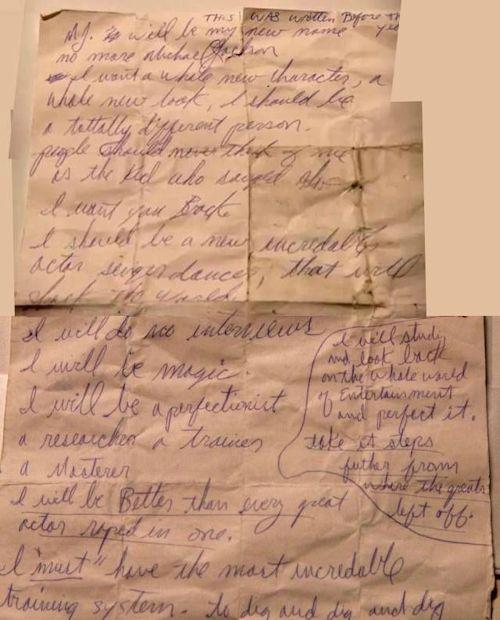 THIS WAS written Before the
MJ. is will be my new name
no more Michael Jackson
I want a whole new character, a
whole new look, I should be
a tottally different person.
people should never think of me
as the kid who sanged
I want you Back
I should be a new incredable
actor singer dancer, that will
shock the world.
I will do no interviews
I will be magic.
I will be a perfectionist
a researcher a trainer
a Masterer
I will be Better than every great
actor roped in one.
I "must" have the most incredable
training system. to dig and dig and dig
I will study
and look back
on the whole world
of Entertainment
and perfect it.
take it steps
futher from
where the greats
left off.